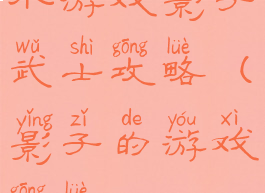 游戏影子
wǔ shì gōng lüè
武士攻略（
yǐng zǐ de yóu xì
影子的游戏
gōng lüè